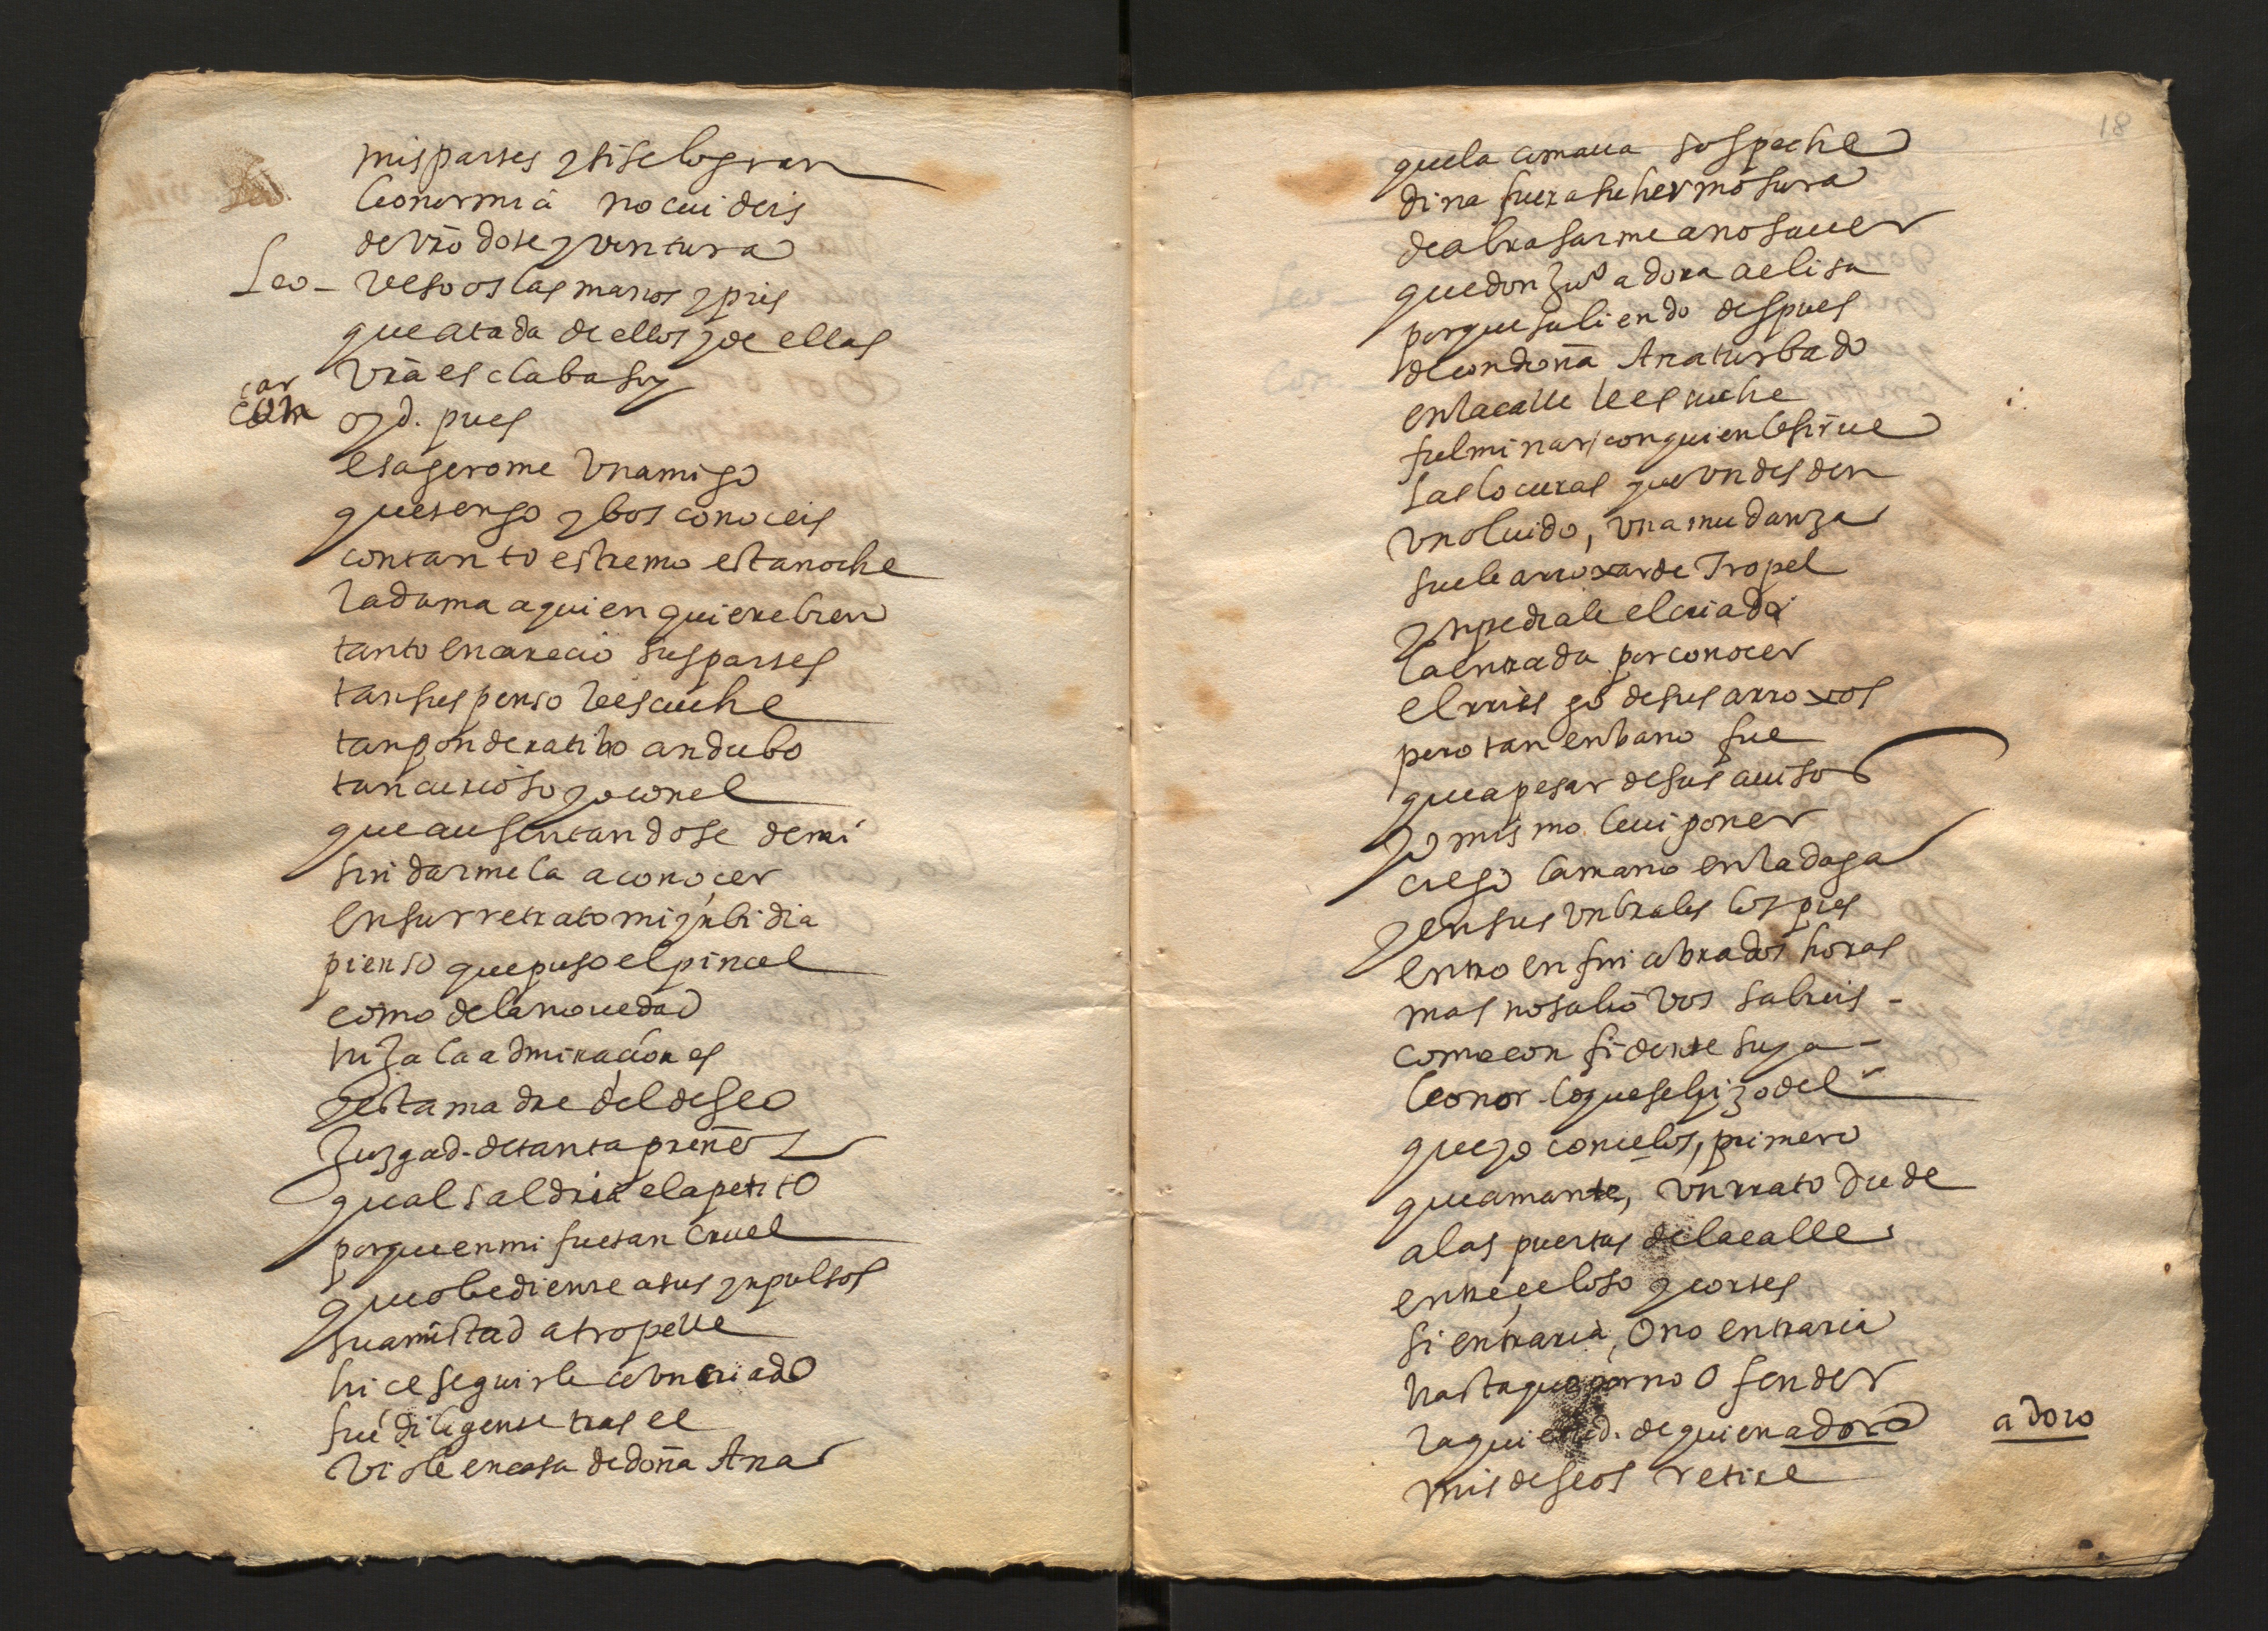 mis partes y si se logran
Leo. leonor mia no cuideis
de vrō dote y ventura
Leo - veso os las manos y pies
que atada de ellos y de ellas
vrā esclaba soy
car
con oyd. pues
esagerome vn amigo
que tengo y bos conoceis
con tanto estremo esta noche
la dama a quien quiere bien
tanto encarecio sus partes
tan suspenso le escuche
tan ponderatibo andubo
tan curioso yo con el
que ausentandose de mi
sin darmela a conocer
en su rretrato mi ynbidia
pienso que puso el pincel
como de la nouedad
hija la admiracion es
y esta madre del deseo
Juzgad. de tanta preñez
qual saldria el apetito
porque en mi fue tan cruel
que obediente a sus ynpulsos
su amistad atropelle
hice seguirle a vn criado
fue diligente tras el
viole en casa de doña Ana
18
que la amaua sospeche
dina fuera su hermosura
de abrasarme a no sauer
que don Juº adora a elisa
porque saliendo despues
de con doña Ana turbado
en la calle le escuche
fulminar con quien le sirue
las locuras que vn desden
vn oluido, vna mudanza
suele arroxar de Tropel
ynpediale el criado
la entrada por conocer
el rriesgo de sus arroxos
pero tan en bano fue
que a pesar de sus auisos
yo mismo le ui poner
ciego la mano en la daga
y en sus vnbrales los pies
entro en fin abra dos horas
mas no salio vos sabreis -
como confidente suya -
leonor lo que se hizo del
que yo con celos, primero
que amante, vn rrato dude
a las puertas de la calle
entre celoso y cortes
si entraria, O no entraria
hasta que por no Ofender
la quietud. de quien adoro adoro
mis deseos retire